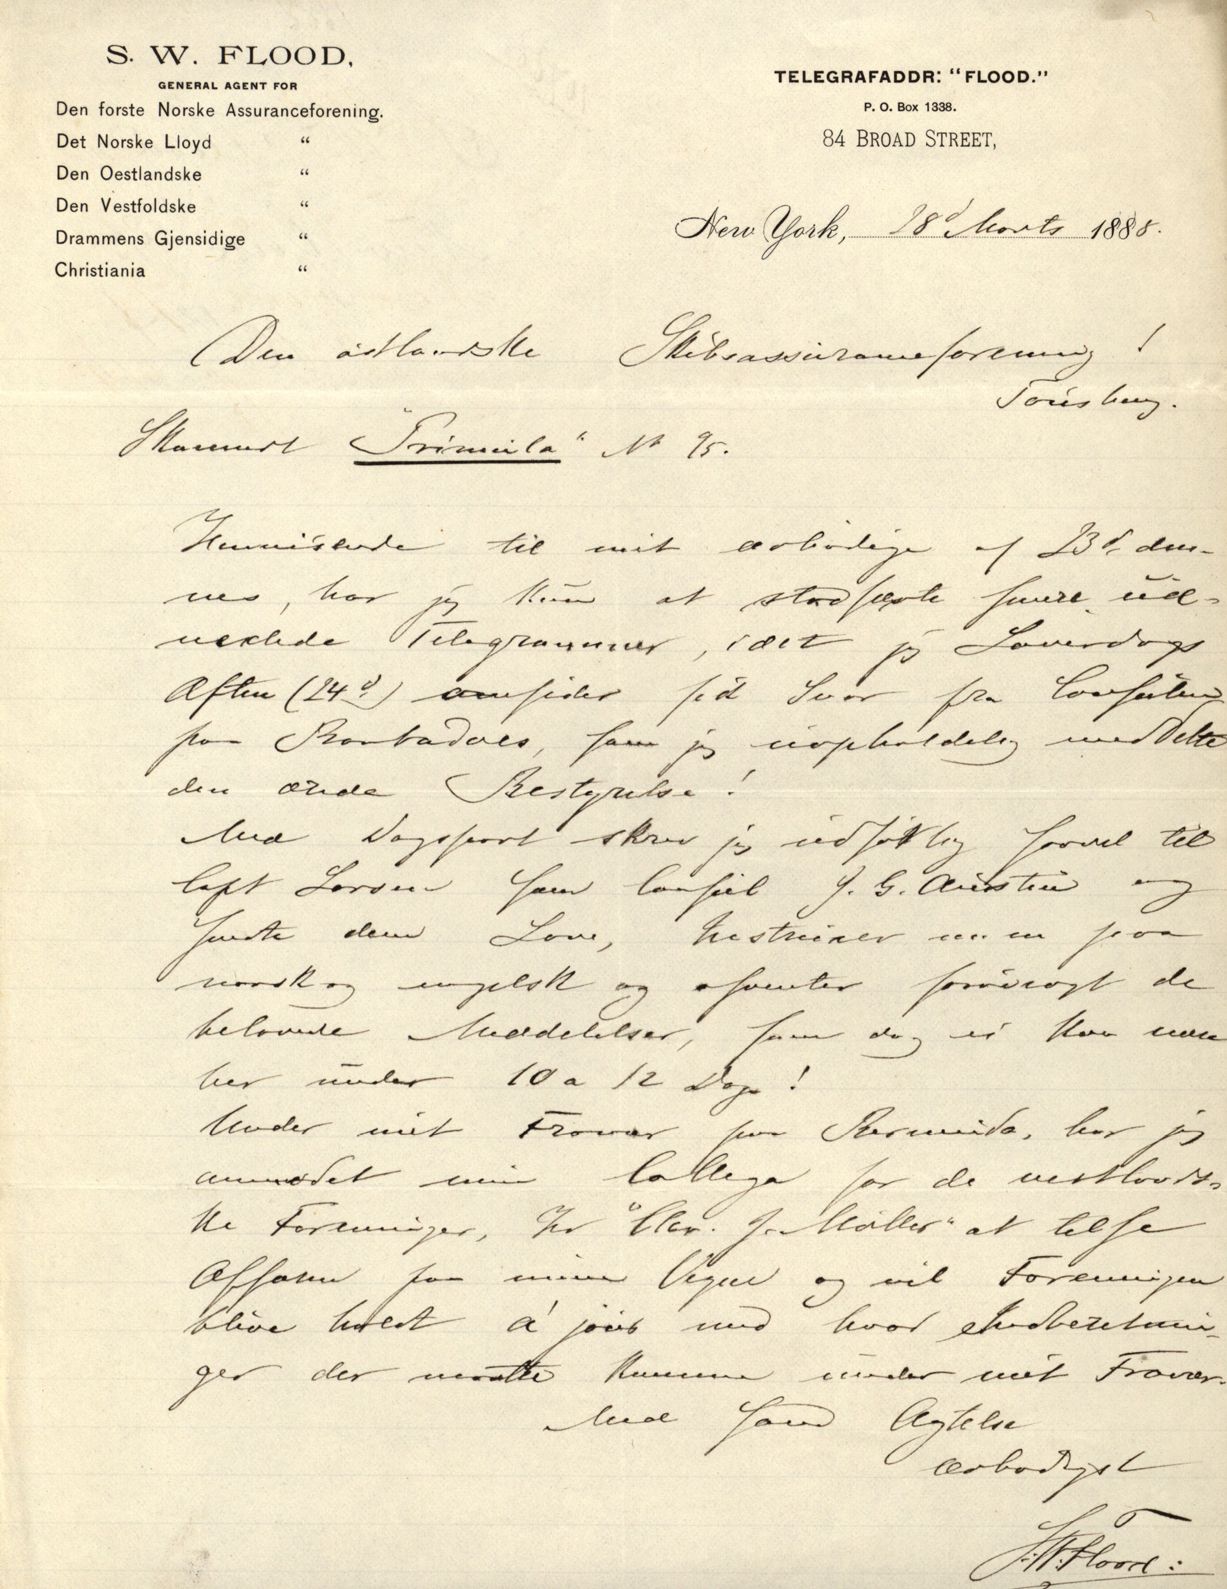 S. W. FLOOD,
GENERAL AGENT FOR
Den forste Norske Assuranceforening.
Det Norske Lloyd "
Den Oestlandske "
Den Vestfoldske "
Drammens Gjensidige "
Christiania "
TELEGRAFADDR: "FLOOD."
P. O. Box 1338.
84 BROAD STREET,
New York, 28d Marts 1888.
Den østlandske Skibsassuranceforening!
Tönsberg.
"Primula" № 95.
Henvisende til mit ærbödige af 23d den-
nes, har jeg kun at stadfæste senere ud-
vexlede Telegrammer, idet jeg Löverdags
Aften (24d) fik Svar fra Consulen
paa Barbadoes, som jeg uopholdelig meddelte
den ærede Bestyrelse!
Med Dagspost skrev jeg udförlig saavel til
Capt Larsen som Consul J. G. Austin og
sendte dem Love, Instruxer paa
norsk og engelsk og afventer forövrigt de
belovede Meddelelser, som dog ei kan være
her under 10 a 12 Dage!
Under mit Fravær paa Bermuda, har jeg
anmodet min Collega for de vestlands-
ke Foreninger, Hr "Chr. J. Möller" at tilse
Affairen paa mine Vegne og vil Foreningen
blive holdt á jour med hvad Indberetnin-
ger der maatte komme under mit Fravær.
Med sand Agtelse
ærbödigst
S.W.Flood: